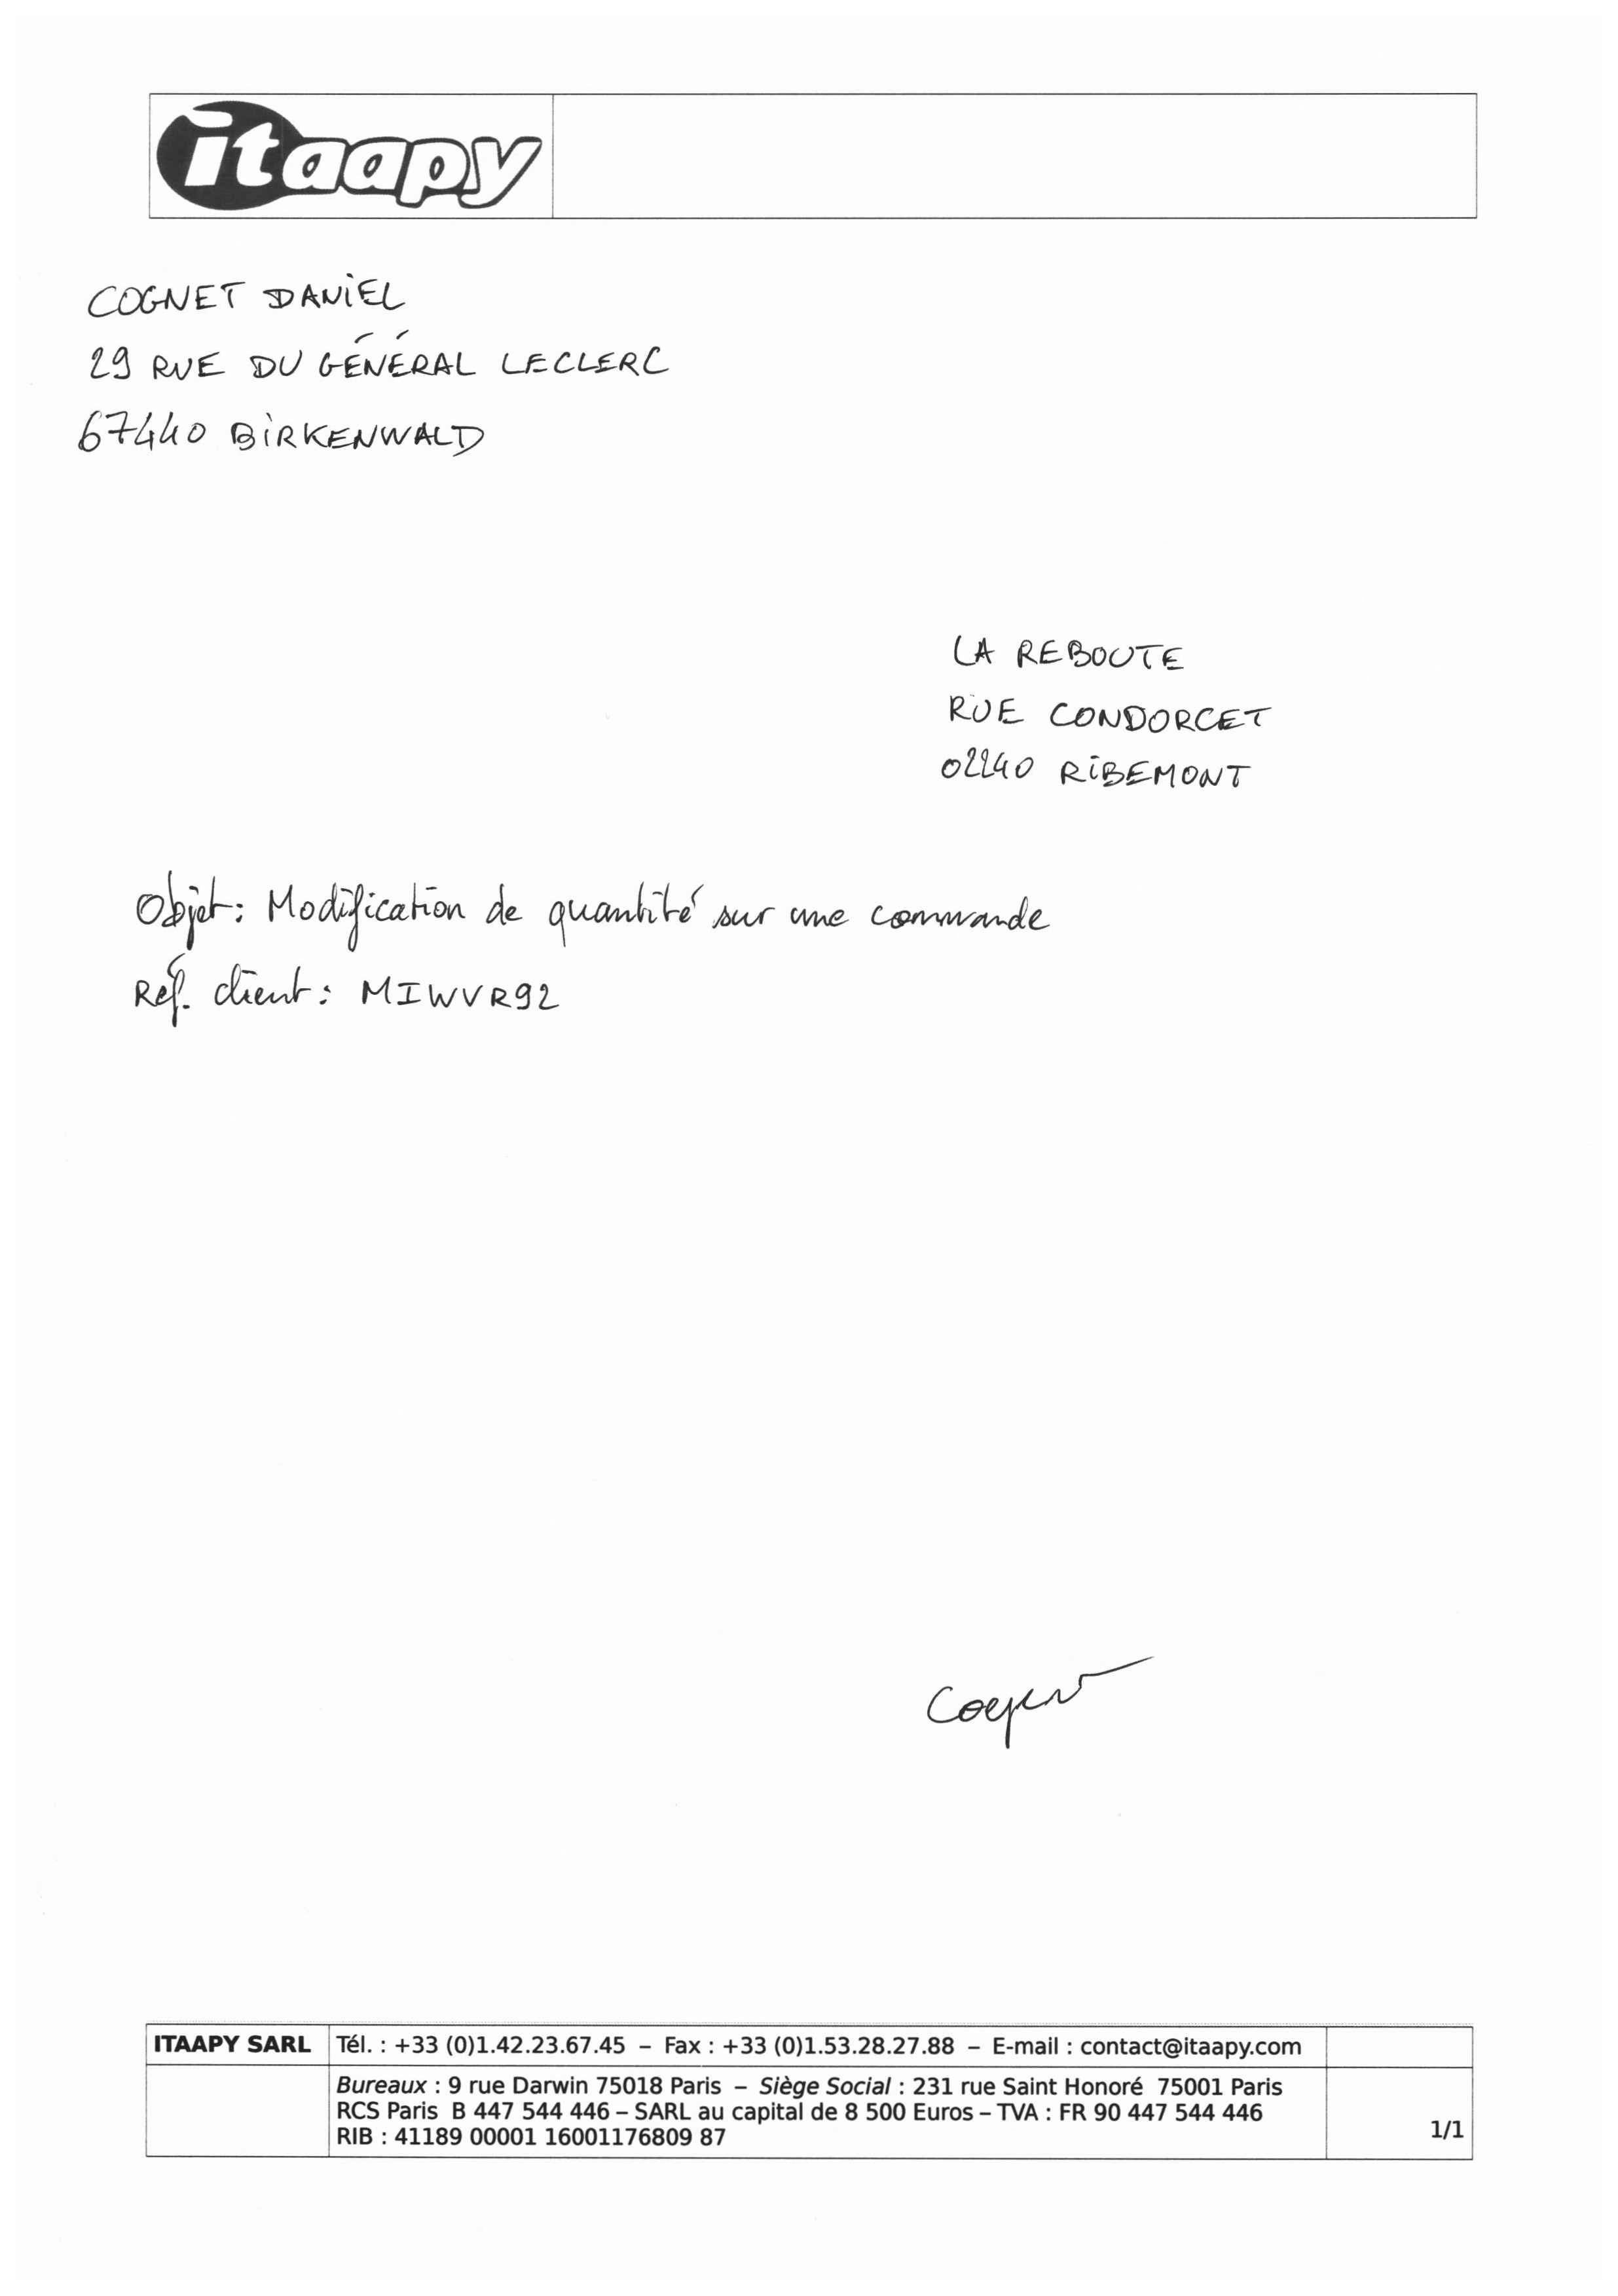 itaapy
COGNET DANIEL
29 RUE DU GÉNÉRAL LECLERC
67440 BIRKENWALD
LA REBOUTE
RUE CONDORCET
02240 RIBEMONT
Objet: Modification de quantité sur une commande
Réf. client: MIWVR92
ITAAPY SARL Tél. : +33 (0)1.42.23.67.45 – Fax : +33 (0)1.53.28.27.88 – E-mail : contact@itaapy.com
Bureaux : 9 rue Darwin 75018 Paris – Siège Social : 231 rue Saint Honoré 75001 Paris
RCS Paris B 447 544 446 – SARL au capital de 8 500 Euros – TVA : FR 90 447 544 446
RIB : 41189 00001 16001176809 87
1/1